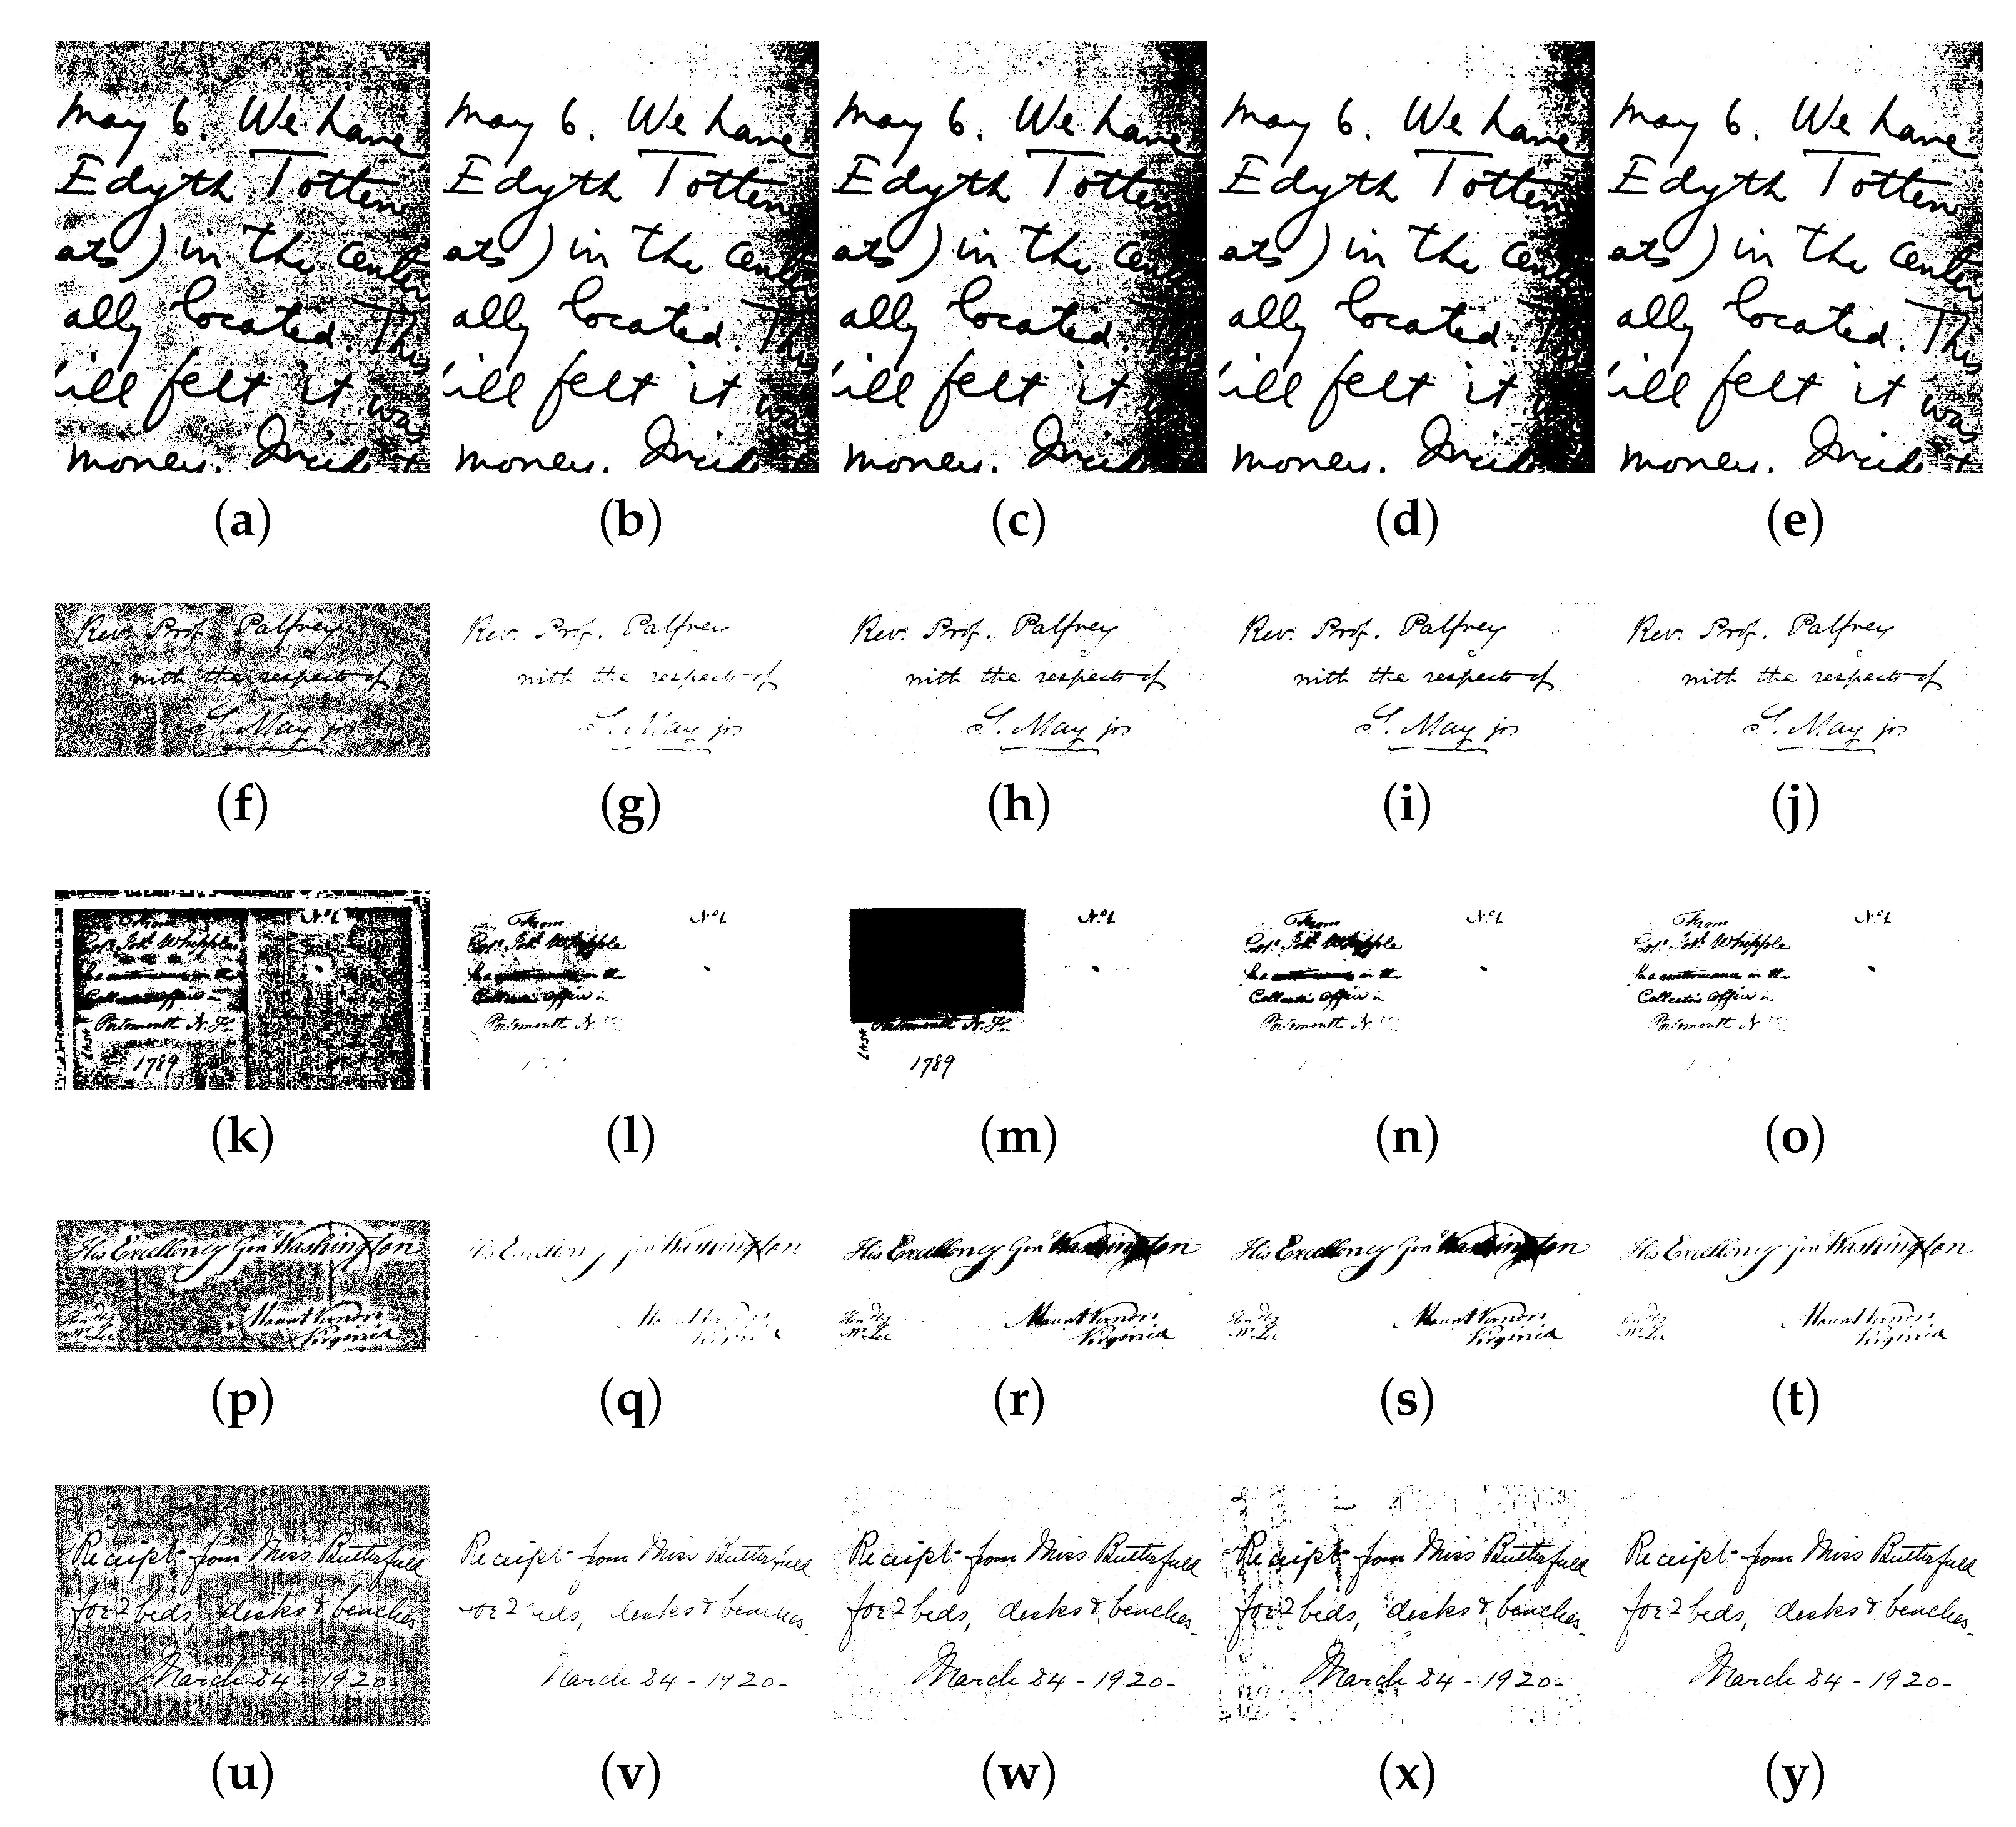 May 6. We have
Edyth Totten
ats) in the center
ally located. This
ill felt it was
money.
(a)
May 6. We have
Edyth Totten
ats) in the
ally located. This
ill felt it was
money.
(b)
May 6. We have
Edyth Totten
ats) in the
ally located.
ill felt it
money.
(c)
May 6. We have
Edyth Totten
ats) in the
ally located.
ill felt it
money.
(d)
May 6. We have
Edyth Totten
ats) in the center
ally located. This
ill felt it was
money.
(e)
Rev. Prof. Palfrey
with the respects of
S. May jr.
(f)
Rev. Prof. Palfrey
with the respects of
S. May jr.
(g)
Rev. Prof. Palfrey
with the respects of
S. May jr.
(h)
Rev. Prof. Palfrey
with the respects of
S. May jr.
(i)
Rev. Prof. Palfrey
with the respects of
S. May jr.
(j)
From
No. 1
Whipple
in the
Office in
Portsmouth N. H.
1789
(k)
From
No. 1
Whipple
in the
Office in
Portsmouth N.
(l)
No. 1
Portsmouth N. H.
1789
(m)
From
No. 1
Whipple
in the
Collector's Office in
Portsmouth N.
(n)
From
No. 1
Whipple
for a continuance in the
Collector's Office in
Portsmouth N.
(o)
His Excellency Gen Washington
Mount Vernon
Virginia
(p)
Washington
(q)
His Excellency Gen Washington
Mount Vernon
Virginia
(r)
His Excellency Gen Washington
Mount Vernon
Virginia
(s)
His Excellency Gen Washington
Mount Vernon
Virginia
(t)
Receipt- from Miss Butterfield
for 2 beds, desks & benches.
March 24 - 1920.
(u)
Receipt- from Miss Butterfield
for 2 beds, desks & benches.
March 24 - 1920-
(v)
Receipt- from Miss Butterfield
for 2 beds, desks & benches.
March 24 - 1920-
(w)
Receipt- from Miss Butterfield
for 2 beds, desks & benches.
March 24 - 1920-
(x)
Receipt- from Miss Butterfield
for 2 beds, desks & benches.
March 24 - 1920-
(y)